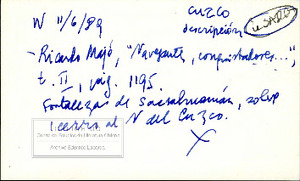 N 11/6/89
CUZCO
descripción
USADO
- Ricardo Majó, "Navegantes, conquistadores...",
t. II, pág. 1195.
Fortaleza de Sacsahuamán, sobre
cerro al N del Cuzco.
Archivo Edberto